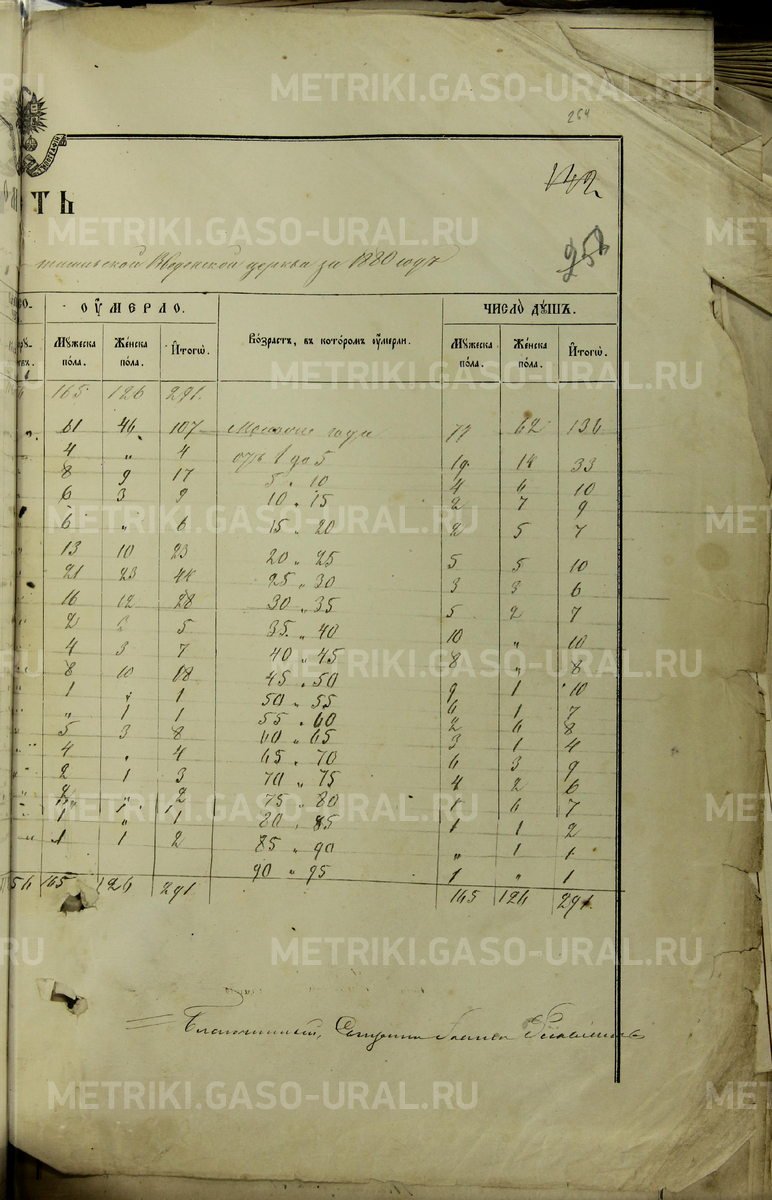 METRIKI.GASO-URAL.RU
264
142
ТЬ
256
церкви за 1880 годъ
ОУМЕРЛО.
ЧИСЛО ДУШЪ.
Мужеска пола.
Женска пола.
Итогѡ.
Возрастъ, въ которомъ оумерли.
Мужеска пола.
Женска пола.
Итогѡ.
165 126 291.
61 46 107 года 77 62 136
4 „ 4 отъ 1 до 5 19 14 33
8 9 17 5 „ 10 4 6 10
6 3 9 10 „ 15 2 7 9
6 „ 6 15 „ 20 2 5 7
13 10 23 20 „ 25 5 5 10
21 23 44 25 „ 30 3 3 6
16 12 28 30 „ 35 5 2 7
2 3 5 35 „ 40 10 „ 10
4 3 7 40 „ 45 8 „ 8
8 10 18 45 „ 50 9 1 10
1 „ 1 50 „ 55 6 1 7
„ 1 1 55 „ 60 2 6 8
5 3 8 60 „ 65 3 1 4
4 „ 4 65 „ 70 6 3 9
2 1 3 70 „ 75 4 2 6
2 „ 2 75 „ 80 1 6 7
1 „ 1 80 „ 85 1 1 2
1 1 2 85 „ 90 „ 1 1
90 „ 95 1 „ 1
56 165 126 291 165 126 291.
Благочинный,
METRIKI.GASO-URAL.RU